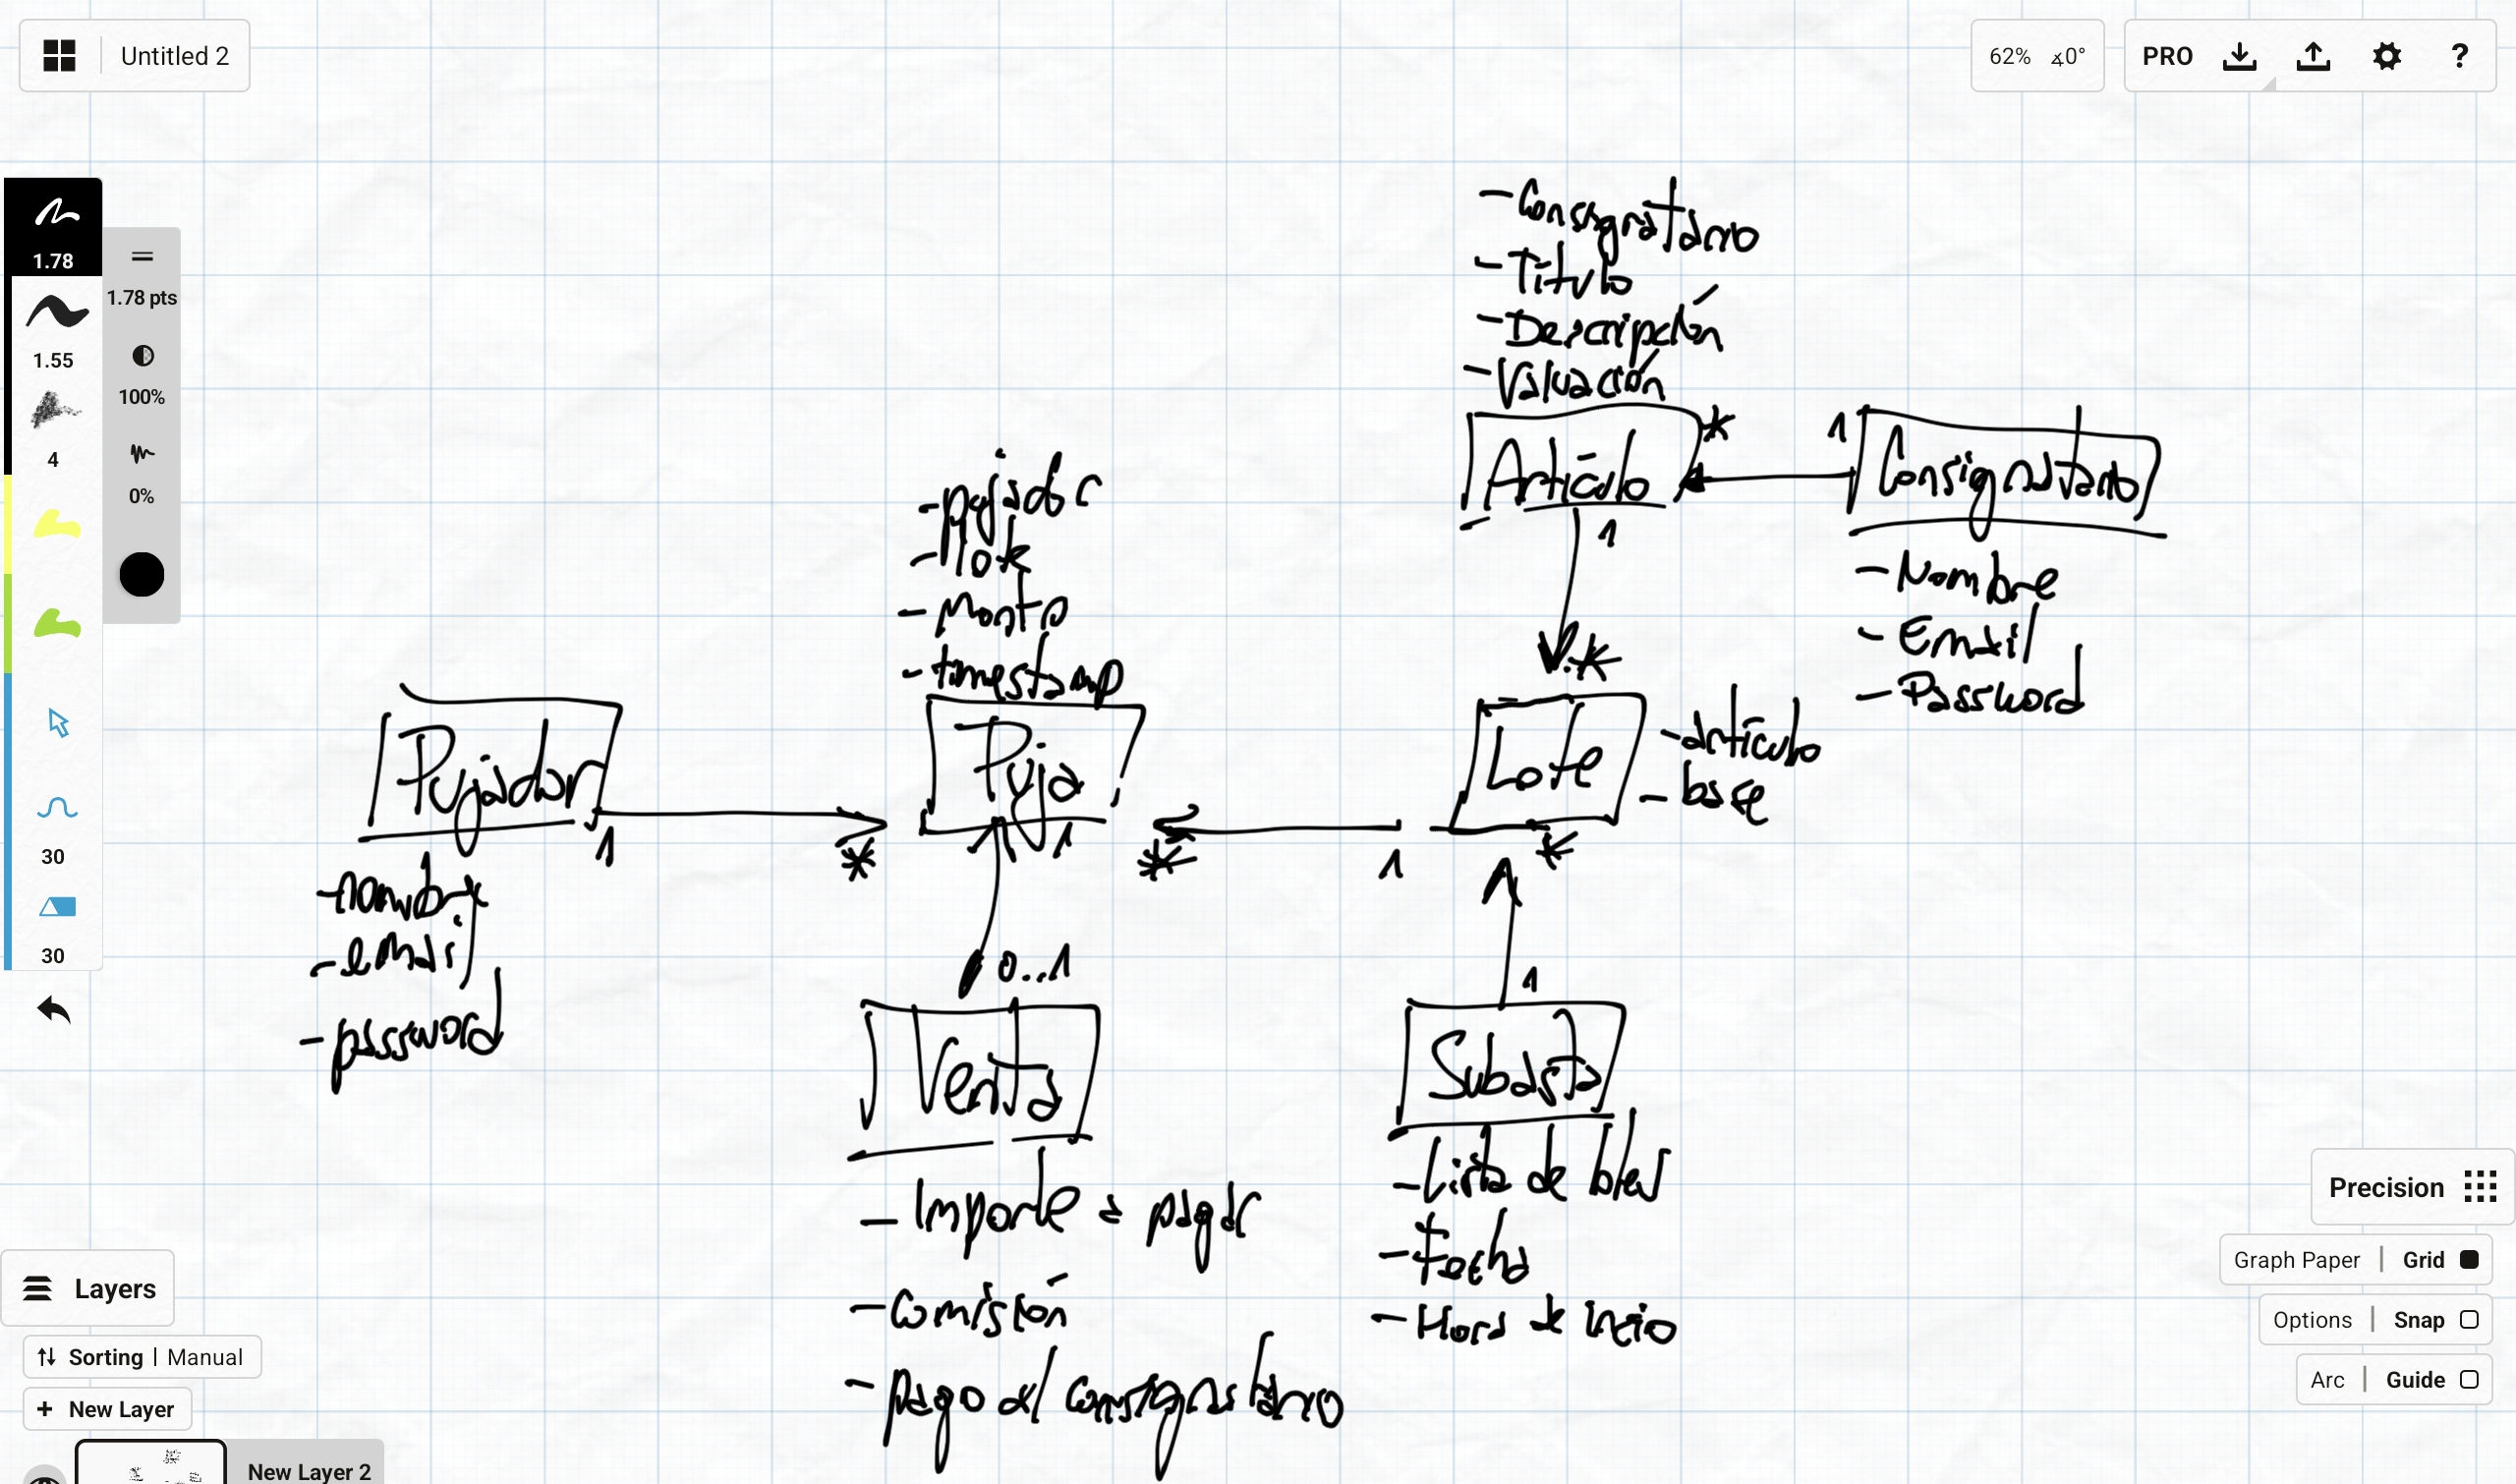 Untitled 2
62% ∡0°
PRO
?
1.78
1.78 pts
1.55
100%
4
0%
30
30
- Consignatario
- Titulo
- Descripción
- Valuación
Artículo
*
1
1
Consignatario
- Nombre
- Email
- Password
- pujador
- lote
- Monto
- timestamp
Pujador
1
- nombre
- email
- password
*
Puja
1
*
1
*
Lote
- artículo
- base
*
0..1
1
Venta
- Importe a pagar
- Comisión
- pago al consignatario
Subasta
- Lista de lotes
- Fecha
- Hora de inicio
Precision
Graph Paper | Grid
Options | Snap
Arc | Guide
Layers
Sorting | Manual
+ New Layer
New Layer 2